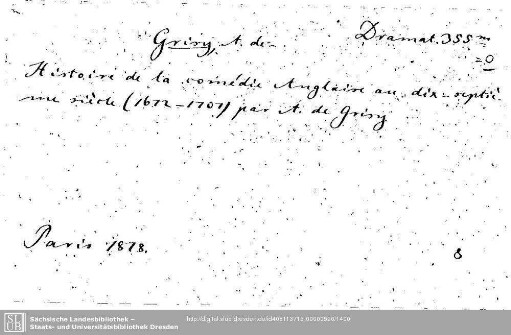 Grisy, A. de-
Dramat. 355 m
=0
Histoire de la comédie Anglaise au dix-septiè
me siècle (1672-1707) par A. de Grisy
Paris 1878.
8
SLUB
Sächsische Landesbibliothek –
Staats- und Universitätsbibliothek Dresden